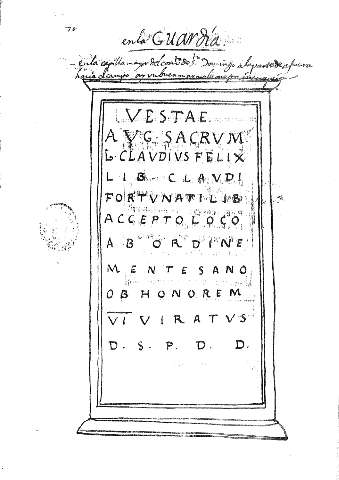 en la Guardia
en la capilla mayor del conv.to de S.to Domingo a la parte de afuera
VESTAE
AVG SACRVM
L. CLAUDIUS FELIX
LIB CLAUDI
FORTVNATI LIB
ACCEPTO LOCO
AB ORDINE
MENTESANO
OB HONOREM
VI VIRATVS
D. S. P. D. D.